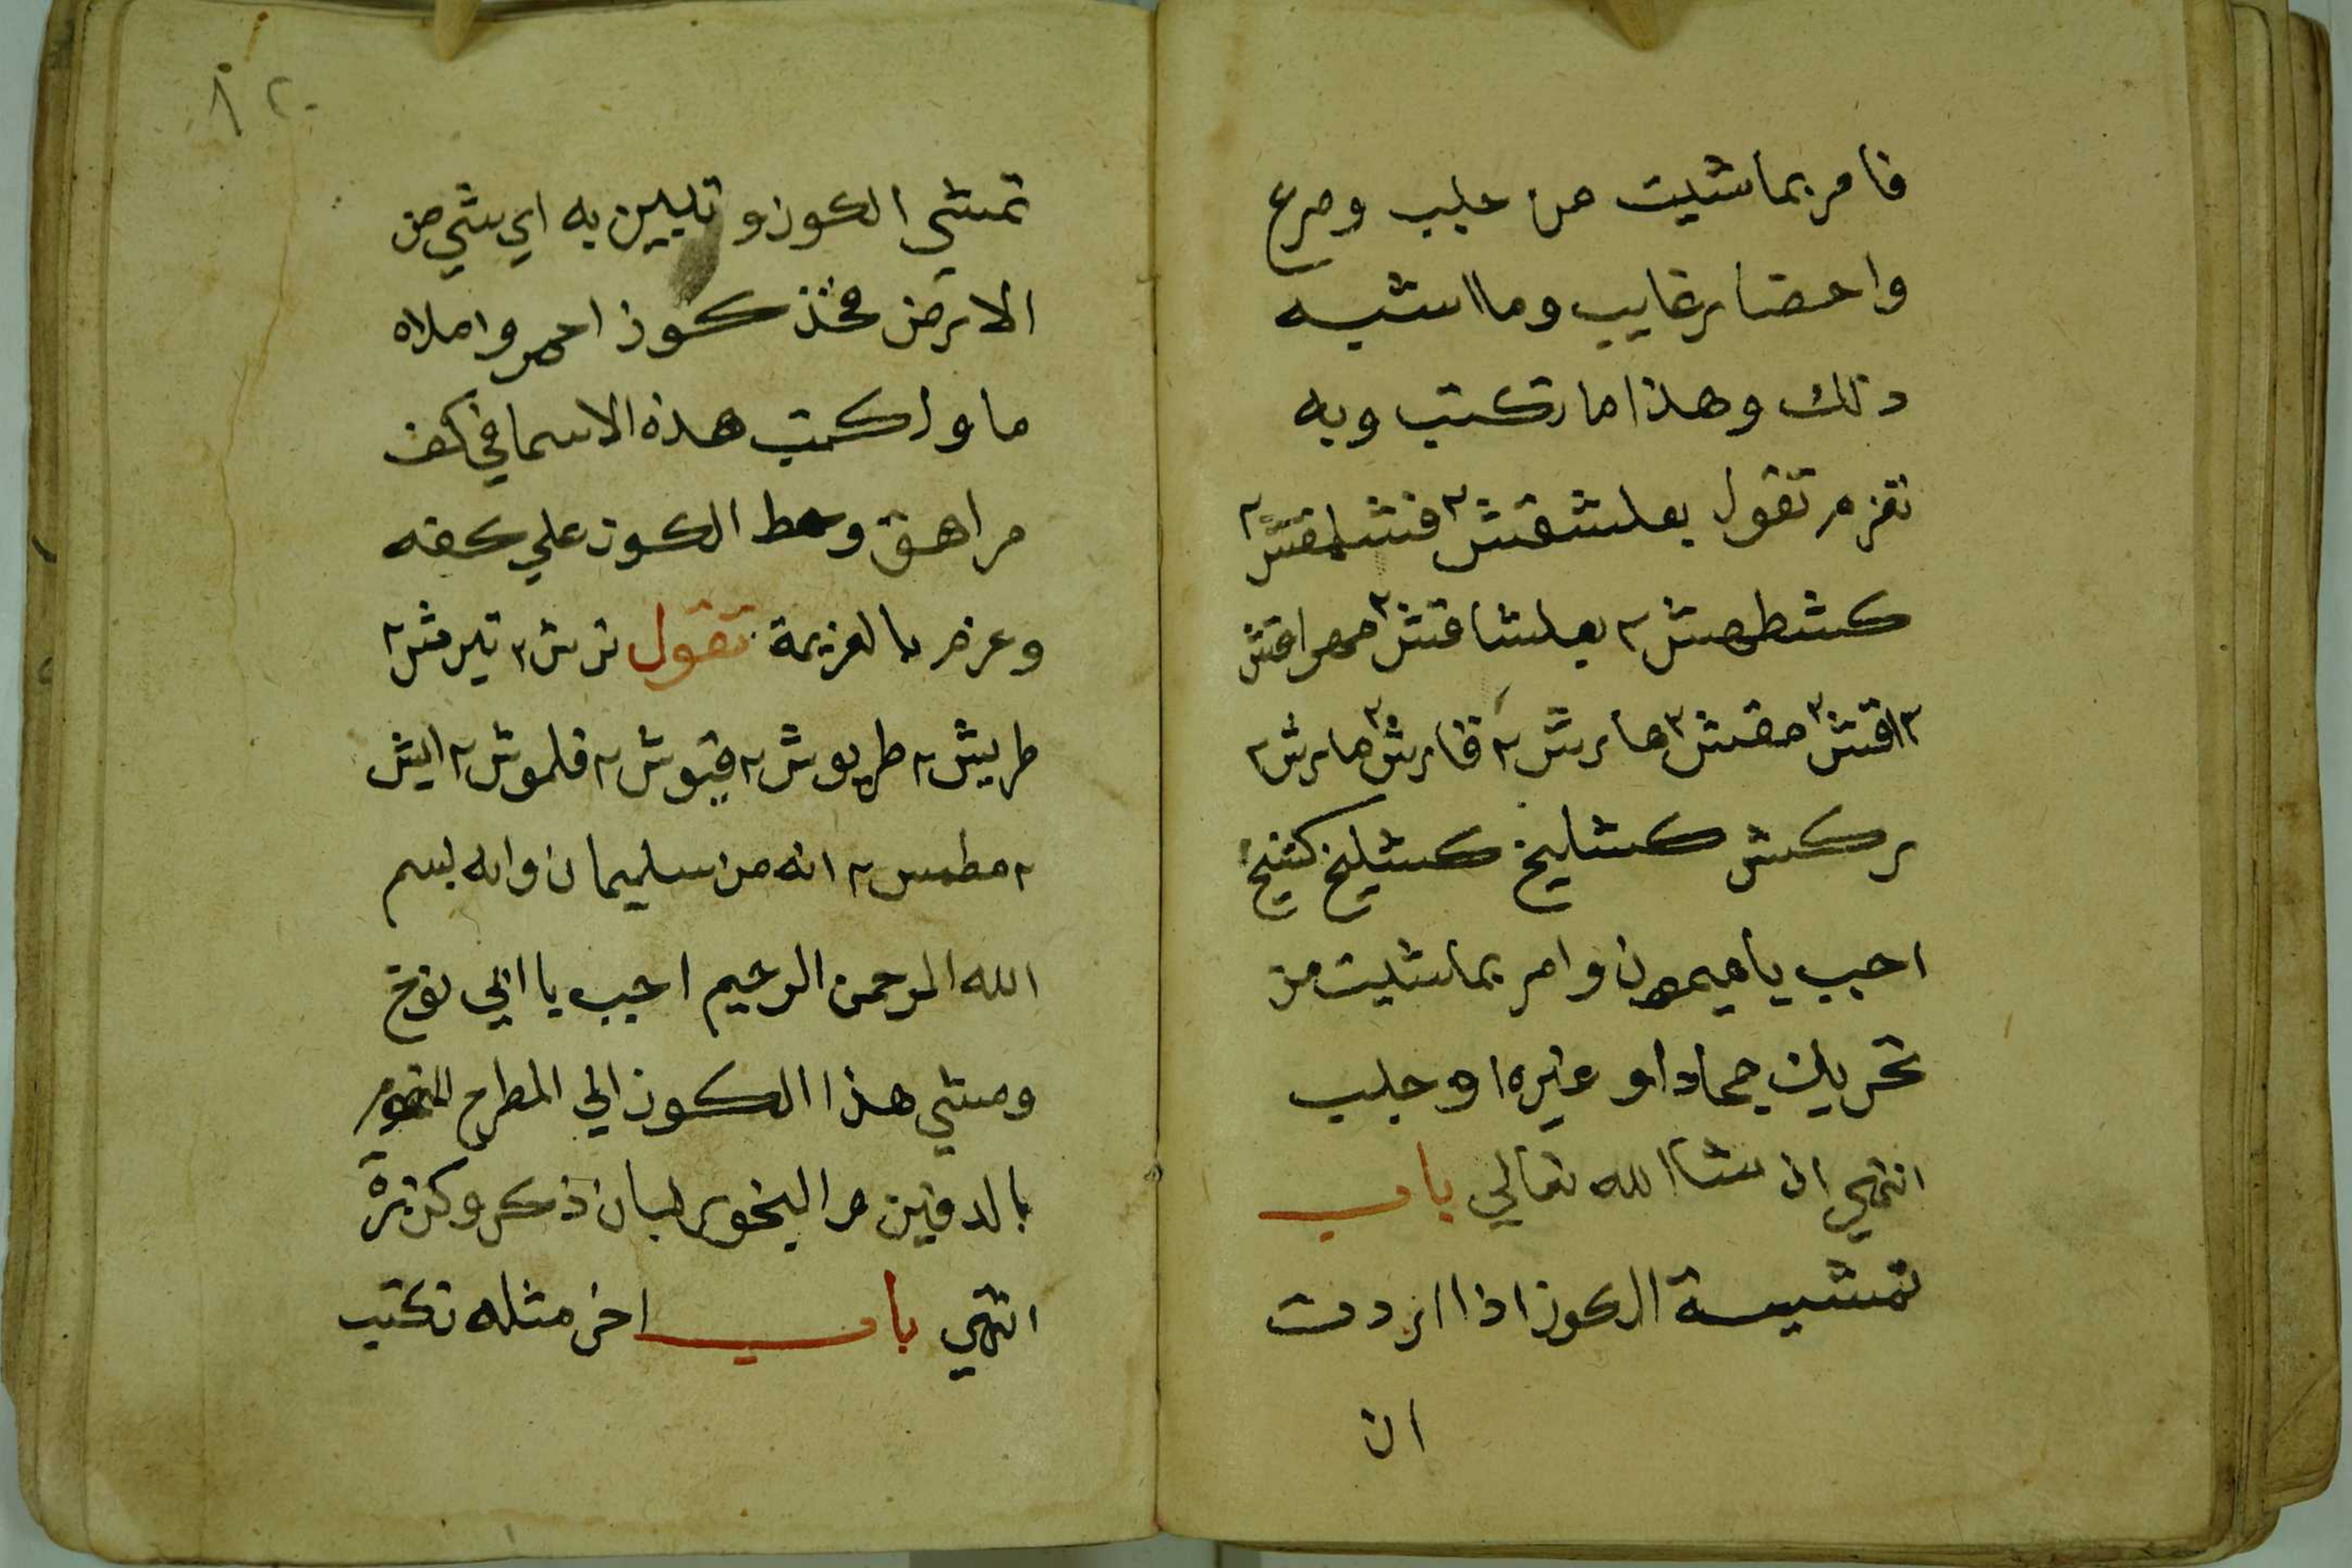 فامر بما شيت من جلب وصرع
واحضار غايب وما اشبه
ذلك وهذا ما تكتب وبه
تعزم تقول بعلشقش ٢ فشلمقش ٢
كشطهش ٢ بعلشاقش ٢ مهراقش
٢ اقش ٢ مقش ٢ هارش ٢ قارش ٢ مارش ٢
بركش كشليخ كشيلخ كشخ
اجب يا ميمون وامر بما شيت من
تحريك جماد او غيره او جلب
انتهي ان شا الله تعالي باب
تمشية الكوز اذا اردت
ان
٢٠
تمشي الكوز وتبين به اي شي من
الارض فخذ كوز احمر واملاه
ما واكتب هذه الاسما في كف
مراهق وحط الكوز علي كفه
وعزم بالعزيمة تقول ترش ٢ تيرمش ٢
طريش ٢ طريوش ٢ قيوش ٢ قلموش ٢ ايش
٢ مطمس ٢ انه من سليمان وانه بسم
الله الرحمن الرحيم اجب يا ابي نوخ
ومشي هذا الكوز الي المطرح
بالدفين م البخور لبان ذكر وكزبرة
انتهي باب اخر مثله تكتب